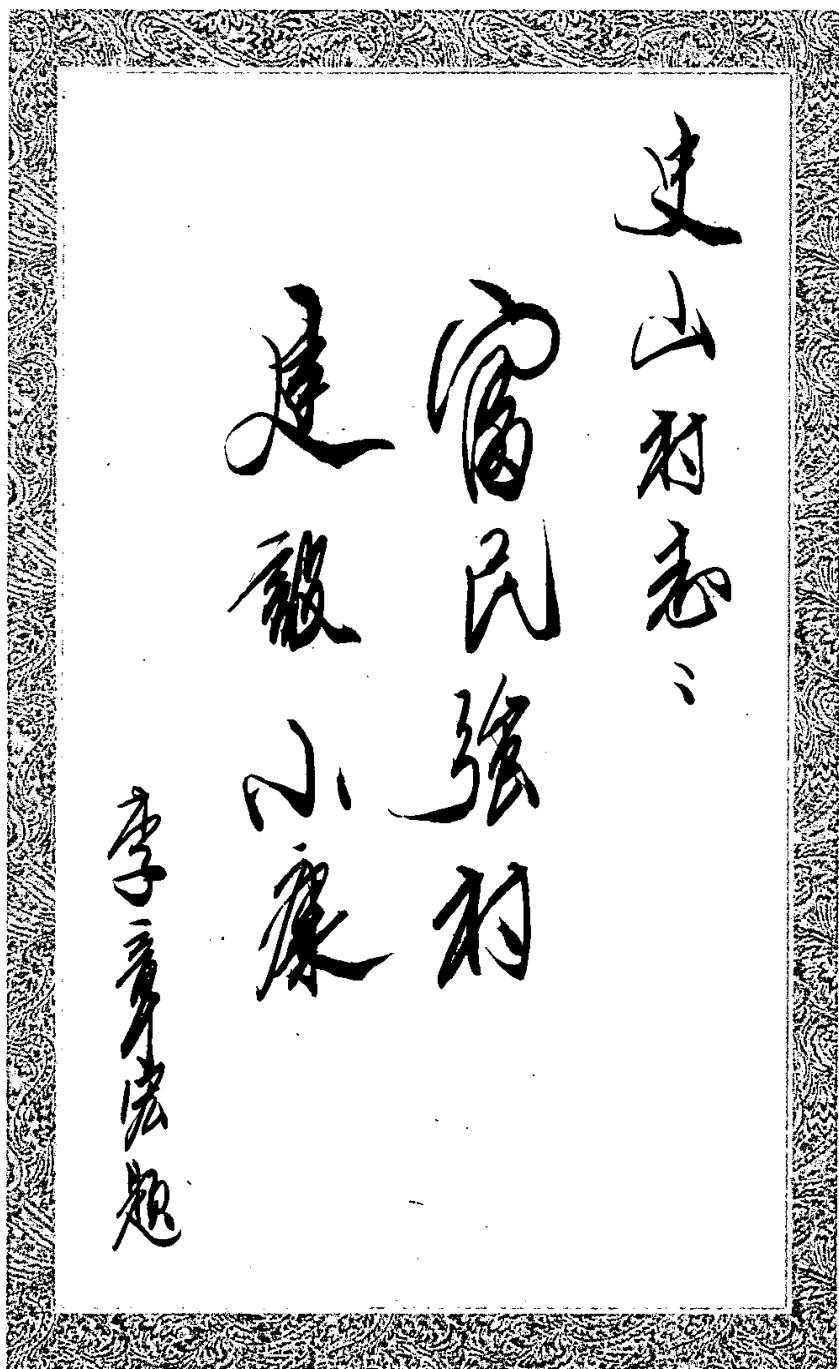 史山村志:
富民强村
建設小康
李章宏题